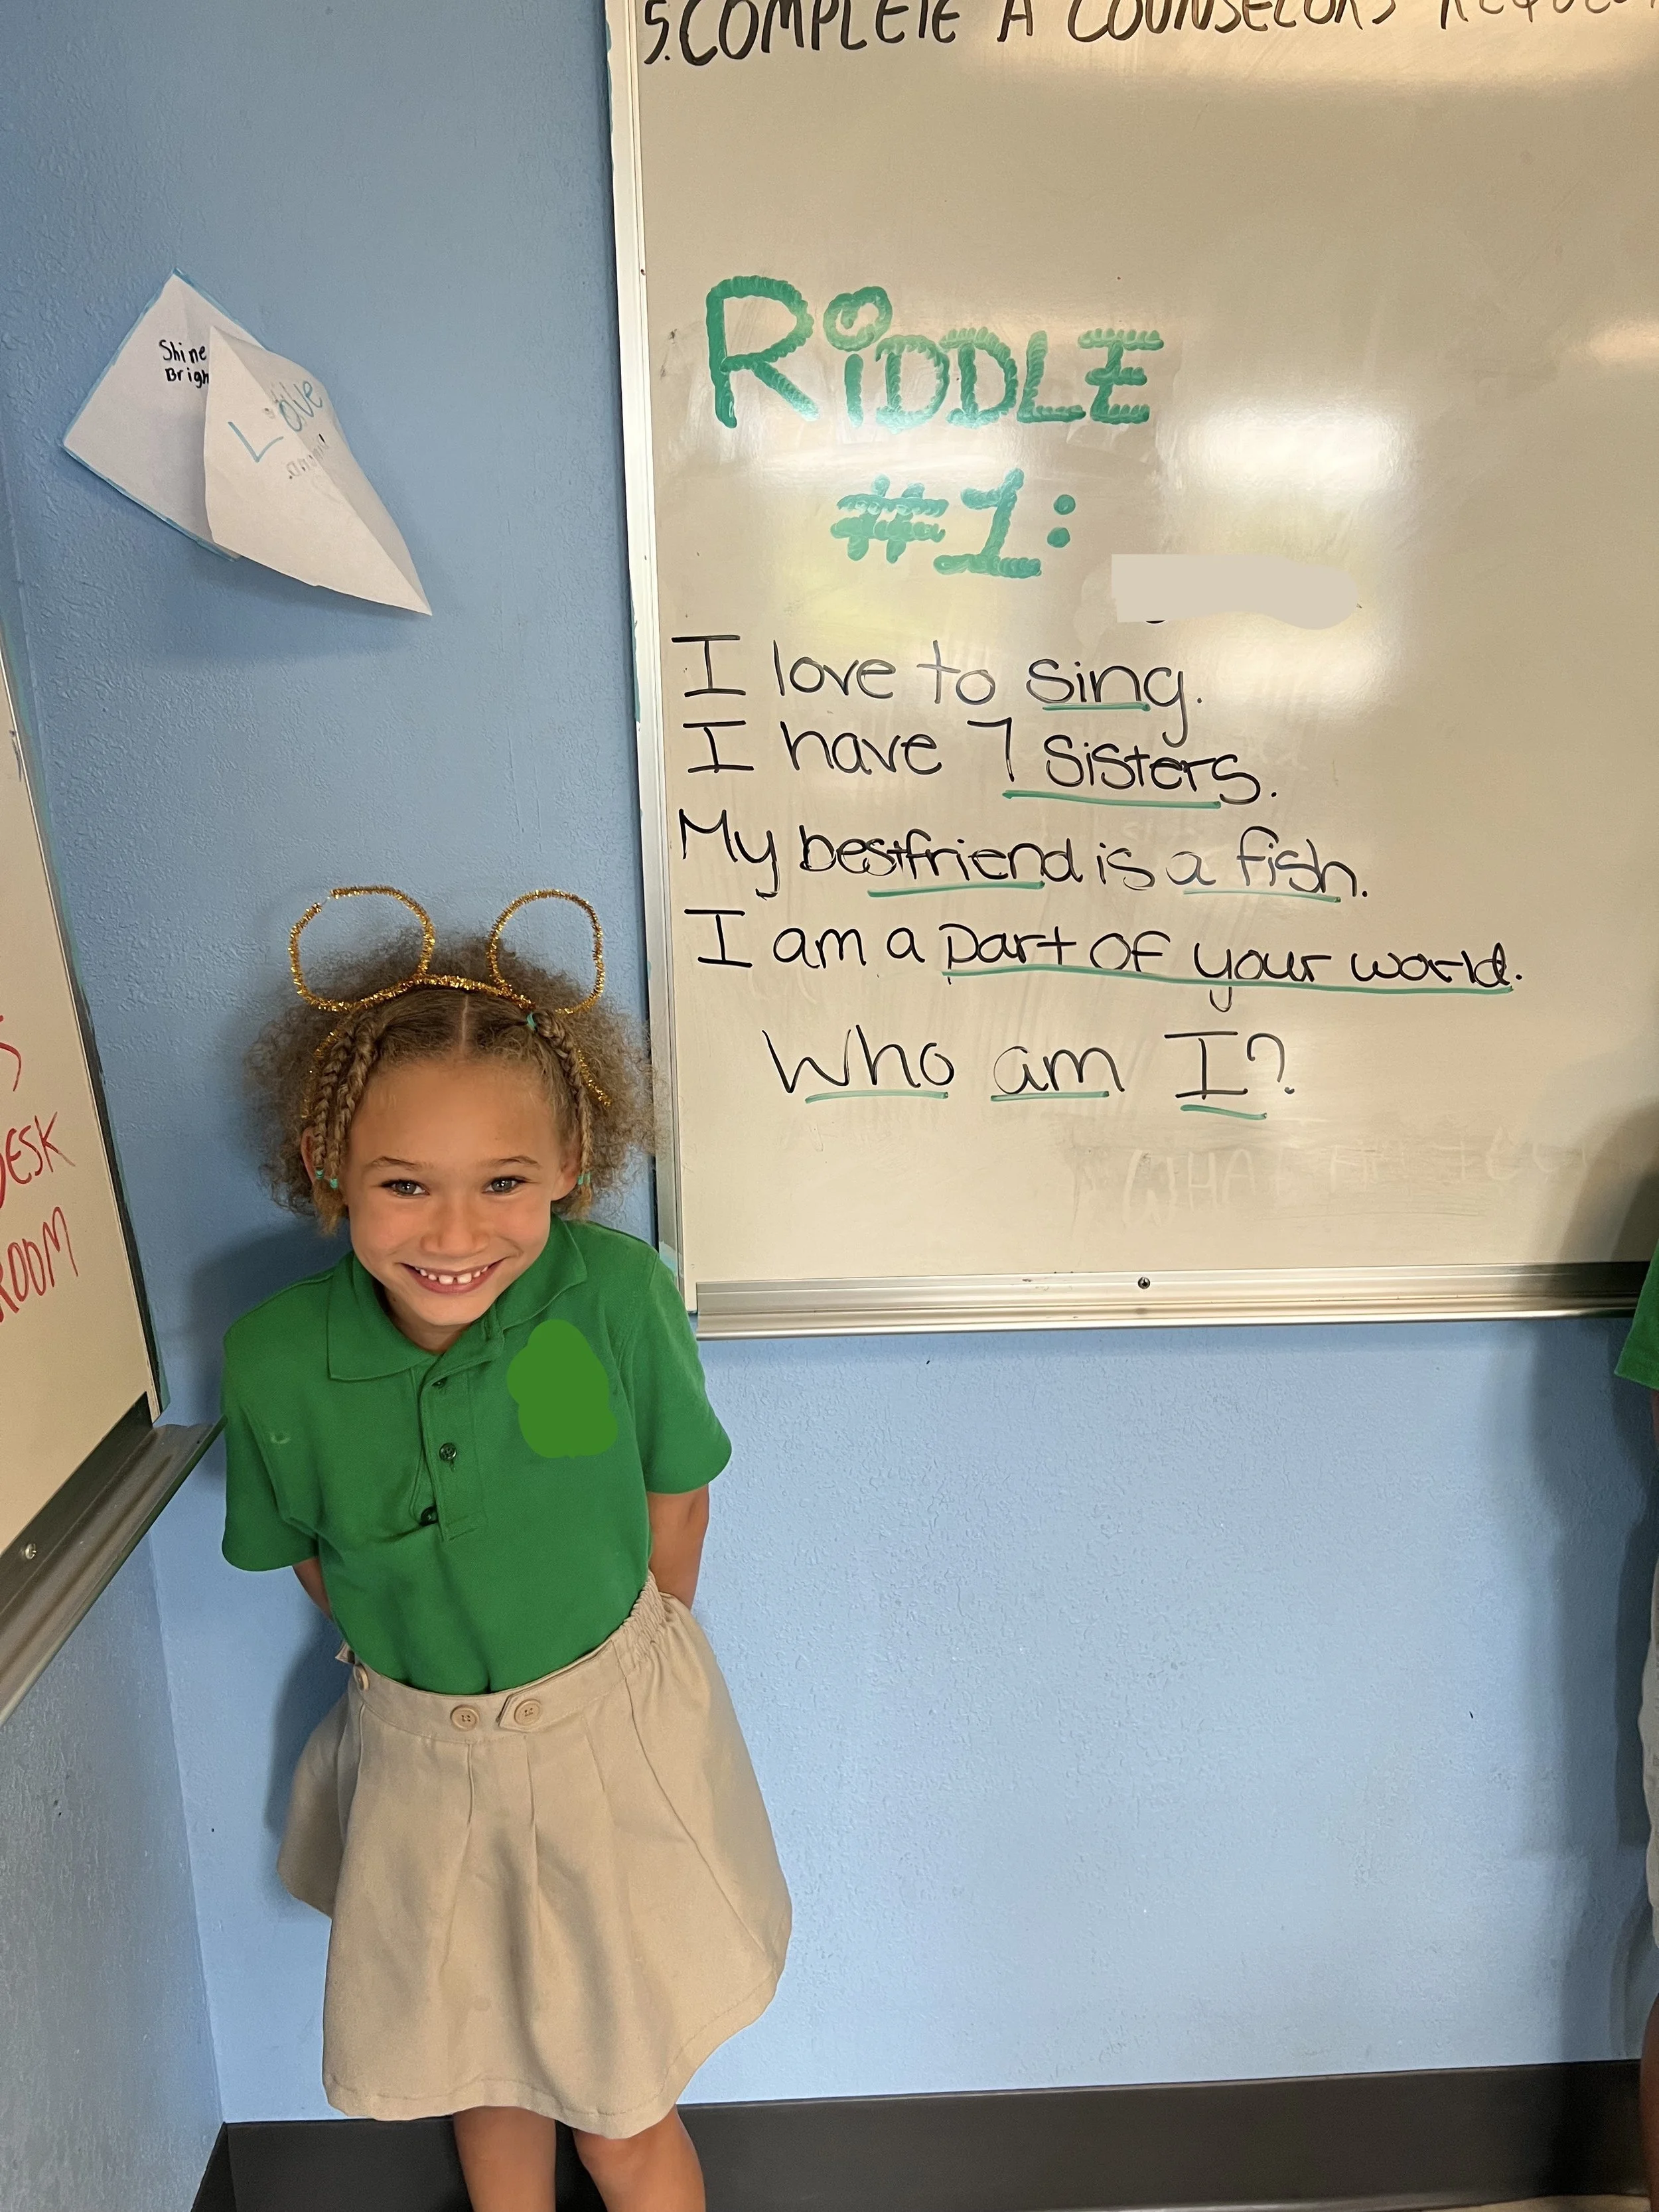 5. COMPLETE A COUNSELORS
Shine
Brigh
Love
RiDDLE
#1:
I love to sing.
I have 7 sisters.
My bestfriend is a fish.
I am a part of your world.
Who am I?
WHAT AM I
DESK
ROOM